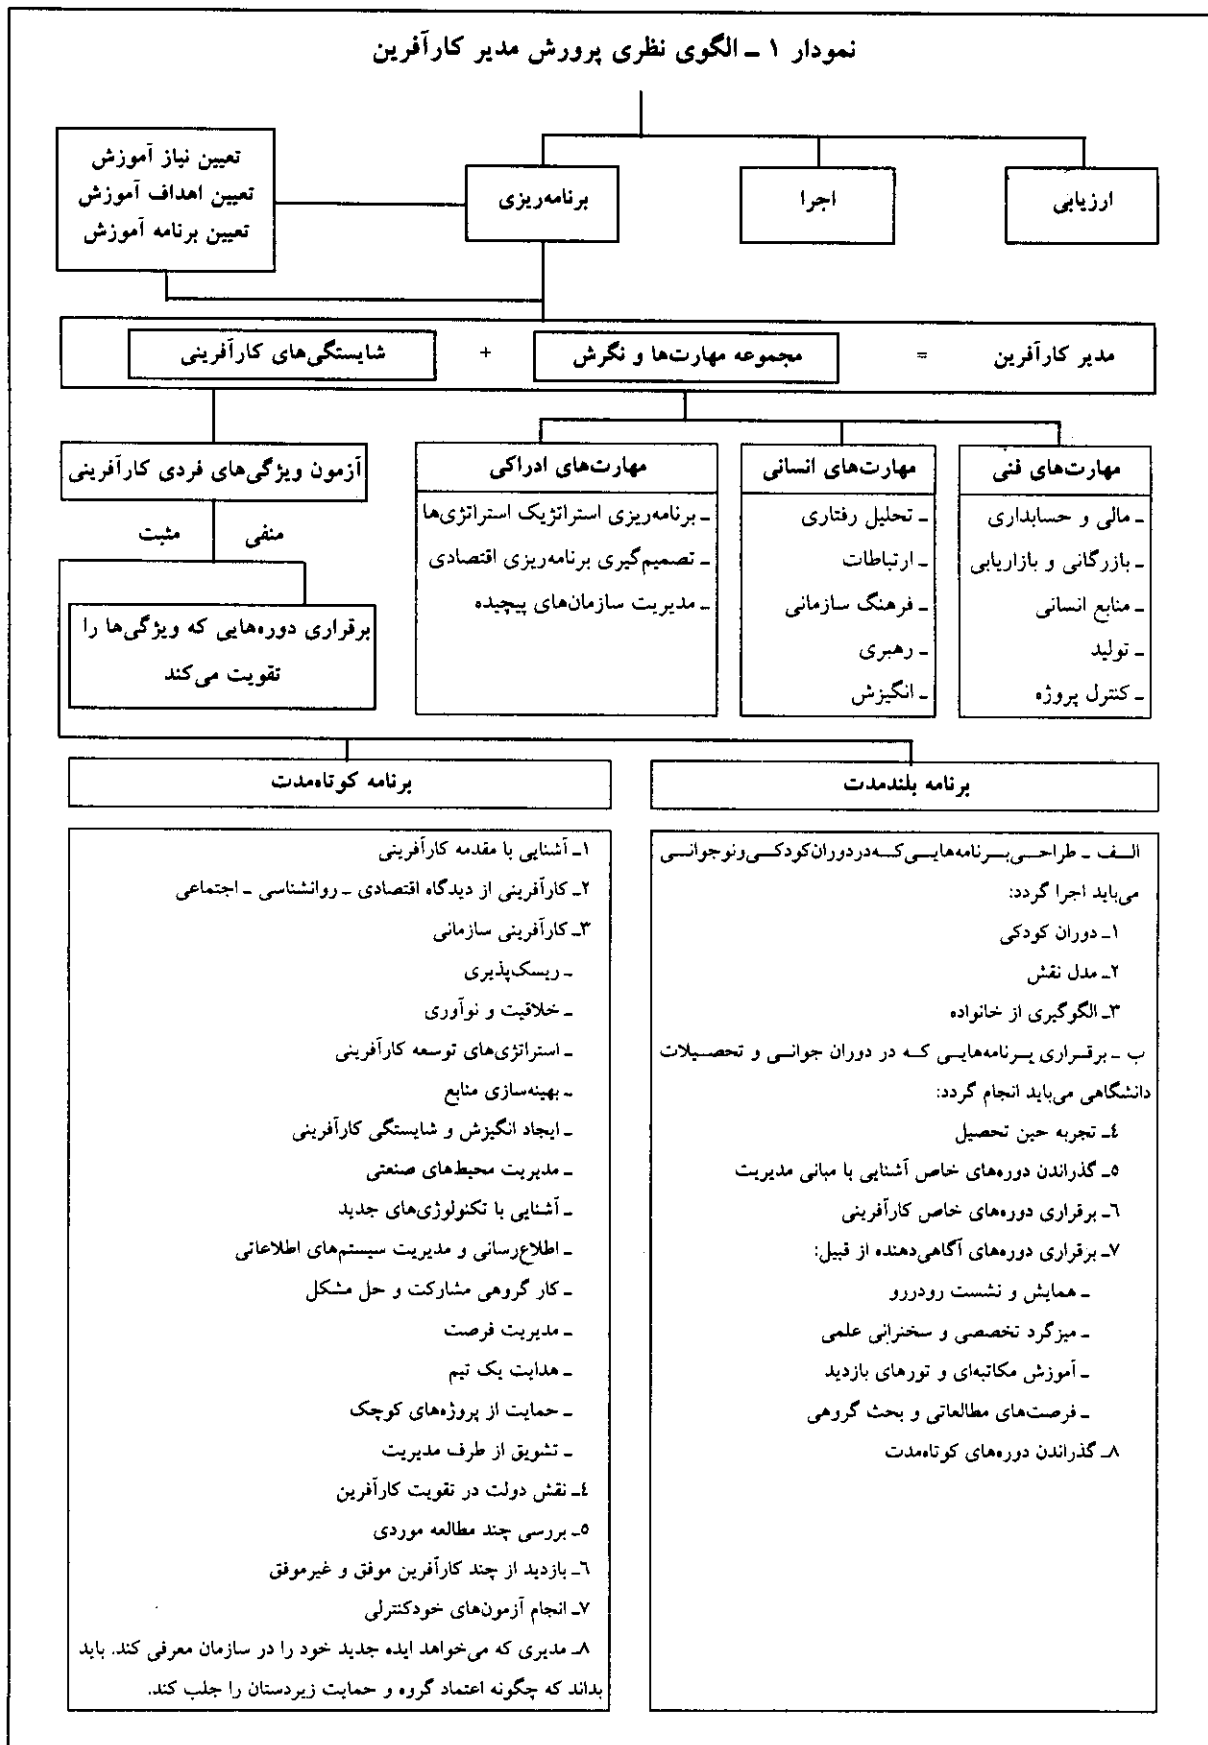 نمودار ۱ ـ الگوی نظری پرورش مدیر کارآفرین
ارزیابی
اجرا
برنامه‌ریزی
تعیین نیاز آموزش
تعیین اهداف آموزش
تعیین برنامه آموزش
مدیر کارآفرین = مجموعه مهارت‌ها و نگرش + شایستگی‌های کارآفرینی
مهارت‌های فنی
ـ مالی و حسابداری
ـ بازرگانی و بازاریابی
ـ منابع انسانی
ـ تولید
ـ کنترل پروژه
مهارت‌های انسانی
ـ تحلیل رفتاری
ـ ارتباطات
ـ فرهنگ سازمانی
ـ رهبری
ـ انگیزش
مهارت‌های ادراکی
ـ برنامه‌ریزی استراتژیک استراتژی‌ها
ـ تصمیم‌گیری برنامه‌ریزی اقتصادی
ـ مدیریت سازمان‌های پیچیده
آزمون ویژگی‌های فردی کارآفرینی
منفی
مثبت
برقراری دوره‌هایی که ویژگی‌ها را
تقویت می‌کند
برنامه بلندمدت
الـف ـ طراحـی بـرنامه‌هایـی کـه در دوران کودکـی و نوجوانـی
می‌باید اجرا گردد:
۱ـ دوران کودکی
۲ـ مدل نقش
۳ـ الگوگیری از خانواده
ب ـ برقـراری برنامه‌هایـی کـه در دوران جوانـی و تحصـیلات
دانشگاهی می‌باید انجام گردد:
٤ـ تجربه حین تحصیل
٥ـ گذراندن دوره‌های خاص آشنایی با مبانی مدیریت
٦ـ برقراری دوره‌های خاص کارآفرینی
۷ـ برقراری دوره‌های آگاهی‌دهنده از قبیل:
ـ همایش و نشست رودررو
ـ میزگرد تخصصی و سخنرانی علمی
ـ آموزش مکاتبه‌ای و تورهای بازدید
ـ فرصت‌های مطالعاتی و بحث گروهی
۸ـ گذراندن دوره‌های کوتاه‌مدت
برنامه کوتاه‌مدت
۱ـ آشنایی با مقدمه کارآفرینی
۲ـ کارآفرینی از دیدگاه اقتصادی ـ روانشناسی ـ اجتماعی
۳ـ کارآفرینی سازمانی
ـ ریسک‌پذیری
ـ خلاقیت و نوآوری
ـ استراتژی‌های توسعه کارآفرینی
ـ بهینه‌سازی منابع
ـ ایجاد انگیزش و شایستگی کارآفرینی
ـ مدیریت محیط‌های صنعتی
ـ آشنایی با تکنولوژی‌های جدید
ـ اطلاع‌رسانی و مدیریت سیستم‌های اطلاعاتی
ـ کار گروهی مشارکت و حل مشکل
ـ مدیریت فرصت
ـ هدایت یک تیم
ـ حمایت از پروژه‌های کوچک
ـ تشویق از طرف مدیریت
٤ـ نقش دولت در تقویت کارآفرین
٥ـ بررسی چند مطالعه موردی
٦ـ بازدید از چند کارآفرین موفق و غیرموفق
۷ـ انجام آزمون‌های خودکنترلی
۸ـ مدیری که می‌خواهد ایده جدید خود را در سازمان معرفی کند. باید
بداند که چگونه اعتماد گروه و حمایت زیردستان را جلب کند.